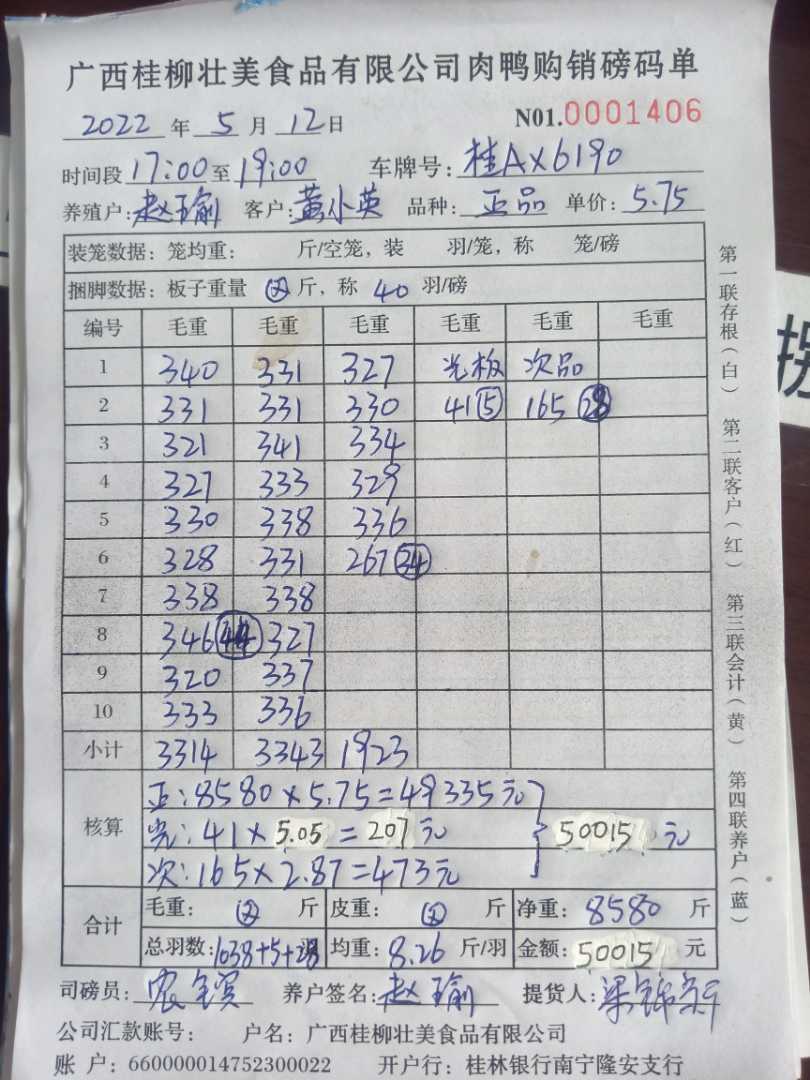 广西桂柳壮美食品有限公司肉鸭购销磅码单
2022年5月12日 N01.0001406
时间段17:00至19:00 车牌号:桂AX6190
养殖户:赵瑜 客户:黄小英 品种:正品 单价:5.75
装笼数据:笼均重: 斤/空笼,装 羽/笼,称 笼/磅
捆脚数据:板子重量 斤,称40羽/磅
编号 毛重 毛重 毛重 毛重 毛重 毛重
1 340 331 327 光板 次品
2 331 331 330 41⑤ 165㉘
3 321 341 334
4 327 333 329
5 330 338 336
6 328 331 267㉞
7 338 338
8 346㊹ 327
9 320 337
10 333 336
小计 3314 3343 1923
核算 正:8580×5.75=49335元
光:41×5.05=207元 } 50015元
次:165×2.87=473元
合计 毛重: 斤 皮重: 斤 净重:8580斤
总羽数:1038+5+28 均重:8.26斤/羽 金额:50015元
司磅员: 养户签名:赵瑜 提货人:
公司汇款账号: 户名:广西桂柳壮美食品有限公司
账户:660000014752300022 开户行:桂林银行南宁隆安支行
第一联存根(白)
第二联客户(红)
第三联会计(黄)
第四联养户(蓝)